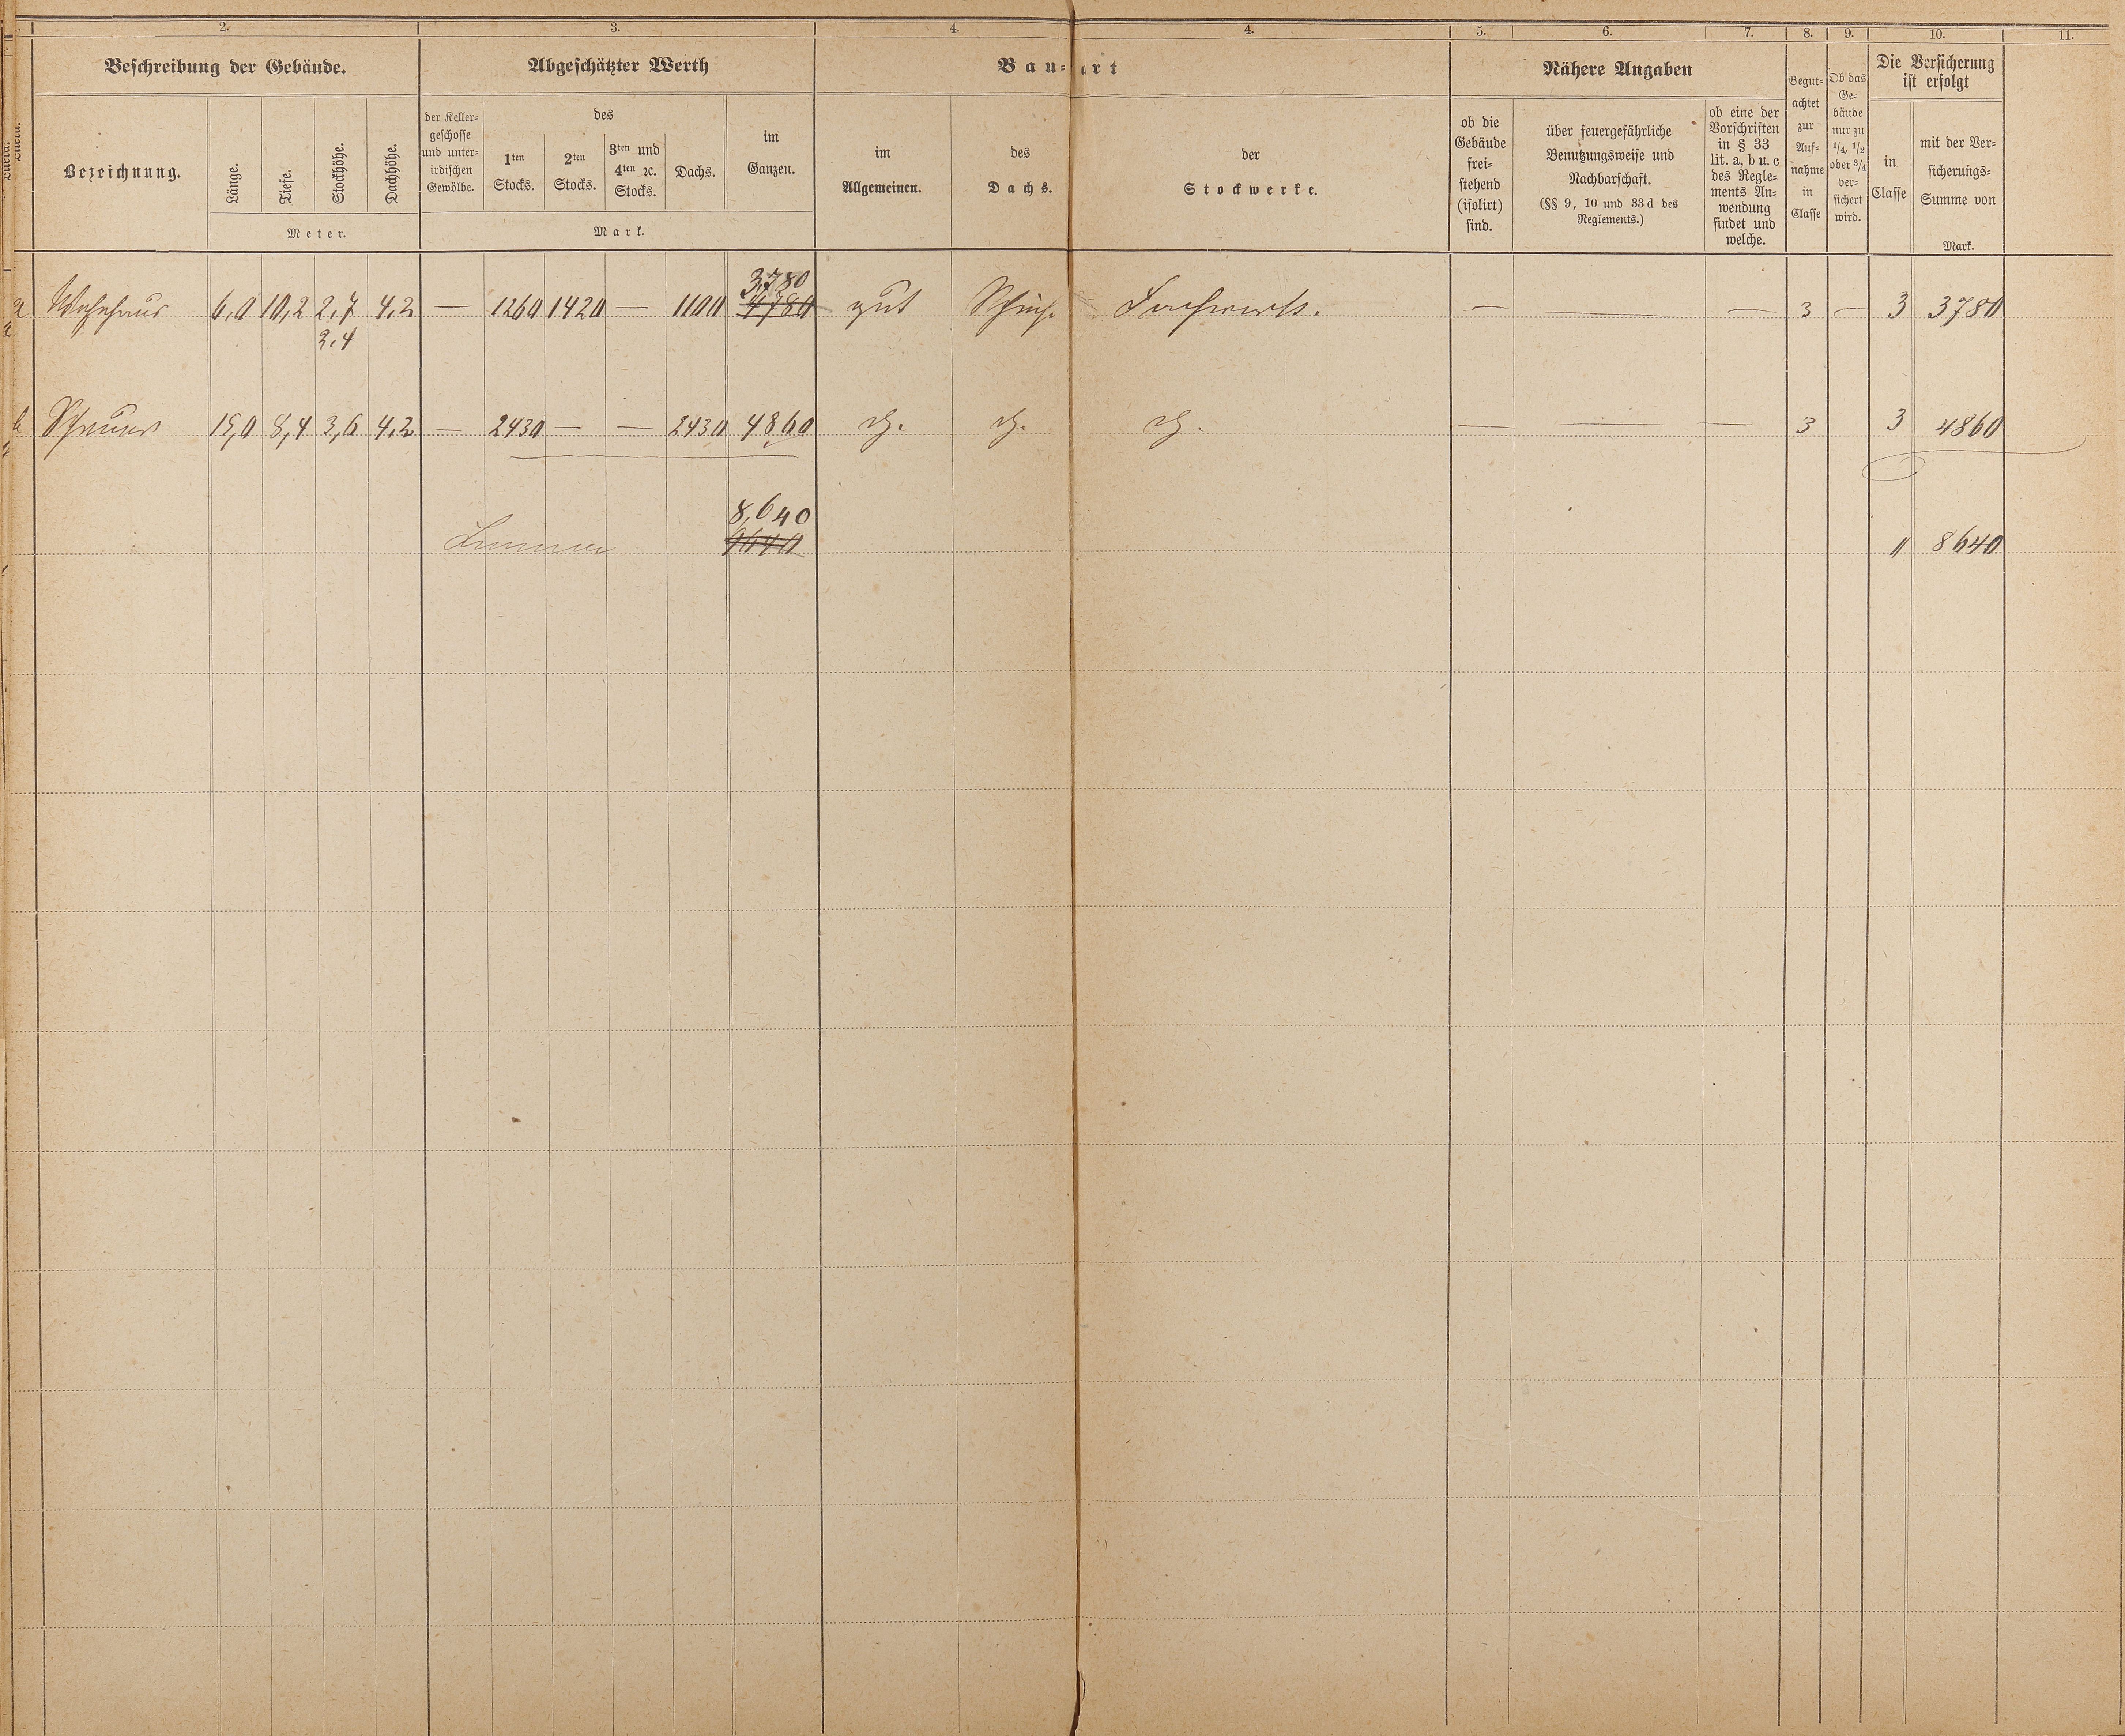 2. 3. 4. 4. 5. 6. 7. 8. 9. 10. 11.
Beschreibung der Gebäude.
Bezeichnung.
Länge.
Tiefe.
Stockhöhe.
Dachhöhe.
Meter.
Abgeschätzter Werth
der Keller-
geschosse
und unter-
irdischen
Gewölbe.
des
1ten
Stocks.
2ten
Stocks.
3ten und
4ten ꝛc.
Stocks.
Dachs.
im
Ganzen.
Mark.
Bau-art
im
Allgemeinen.
des
Dachs.
der
Stockwerke.
Nähere Angaben
ob die
Gebäude
frei-
stehend
(isolirt)
sind.
über feuergefährliche
Benutzungsweise und
Nachbarschaft.
(§§ 9, 10 und 33 d des
Reglements.)
ob eine der
Vorschriften
in § 33
lit. a, b u. c
des Regle-
ments An-
wendung
findet und
welche.
Begut-
achtet
zur
Auf-
nahme
in
Classe
Ob das
Ge-
bäude
nur zu
1/4, 1/2
oder 3/4
ver-
sichert
wird.
Die Versicherung
ist erfolgt
in
Classe
mit der Ver-
sicherungs-
Summe von
Mark.
3,780
a Wohnhaus 6,0 10,2 2,7 4,2 — 1260 1420 — 1100 4780 gut Fachwerk. — — — 3 — 3 3780
2,4
b Scheuer 15,0 8,4 3,6 4,2 — 2430 — — 2430 4860 dg. dg. dg. — — — 3 3 4860
8,640
Summe 9640 " 8640